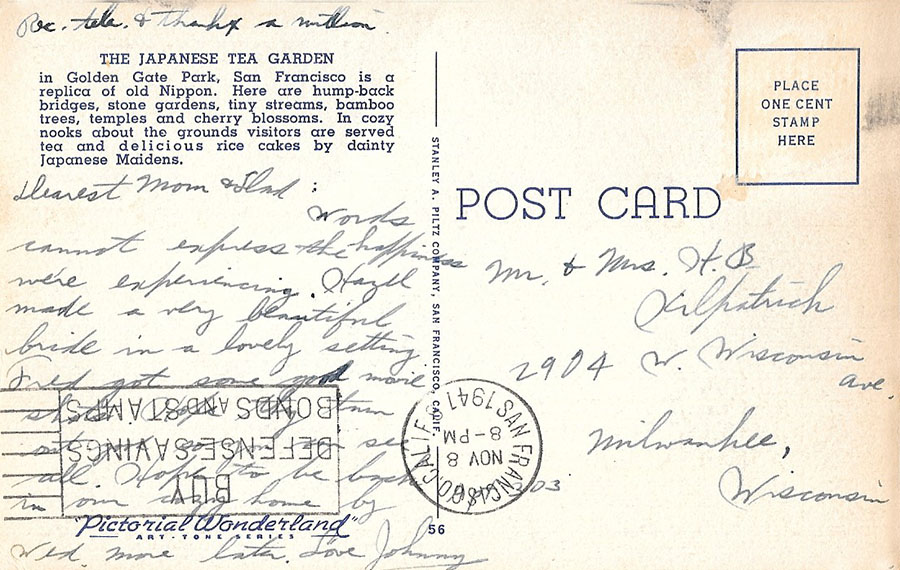 Rec. tele. & thanks a million
THE JAPANESE TEA GARDEN
in Golden Gate Park, San Francisco is a
replica of old Nippon. Here are hump-back
bridges, stone gardens, tiny streams, bamboo
trees, temples and cherry blossoms. In cozy
nooks about the grounds visitors are served
tea and delicious rice cakes by dainty
Japanese Maidens.
Dearest Mom & Dad:
Words
cannot express the happiness
we're experiencing. Hazel
made a very beautiful
bride in a lovely setting
Fred got some good movie
all. Hope to be back
in our home by
Wed. more later. Love Johnny
BUY
DEFENSE SAVINGS
BONDS AND STAMPS
"Pictorial Wonderland"
ART-TONE SERIES
STANLEY A. PILTZ COMPANY, SAN FRANCISCO, CALIF.
56
SAN FRANCISCO CALIF
NOV 8
8-PM
1941
POST CARD
PLACE
ONE CENT
STAMP
HERE
Mr. & Mrs. H. B.
Kilpatrick
2904 W. Wisconsin
ave.
Milwaukee,
Wisconsin